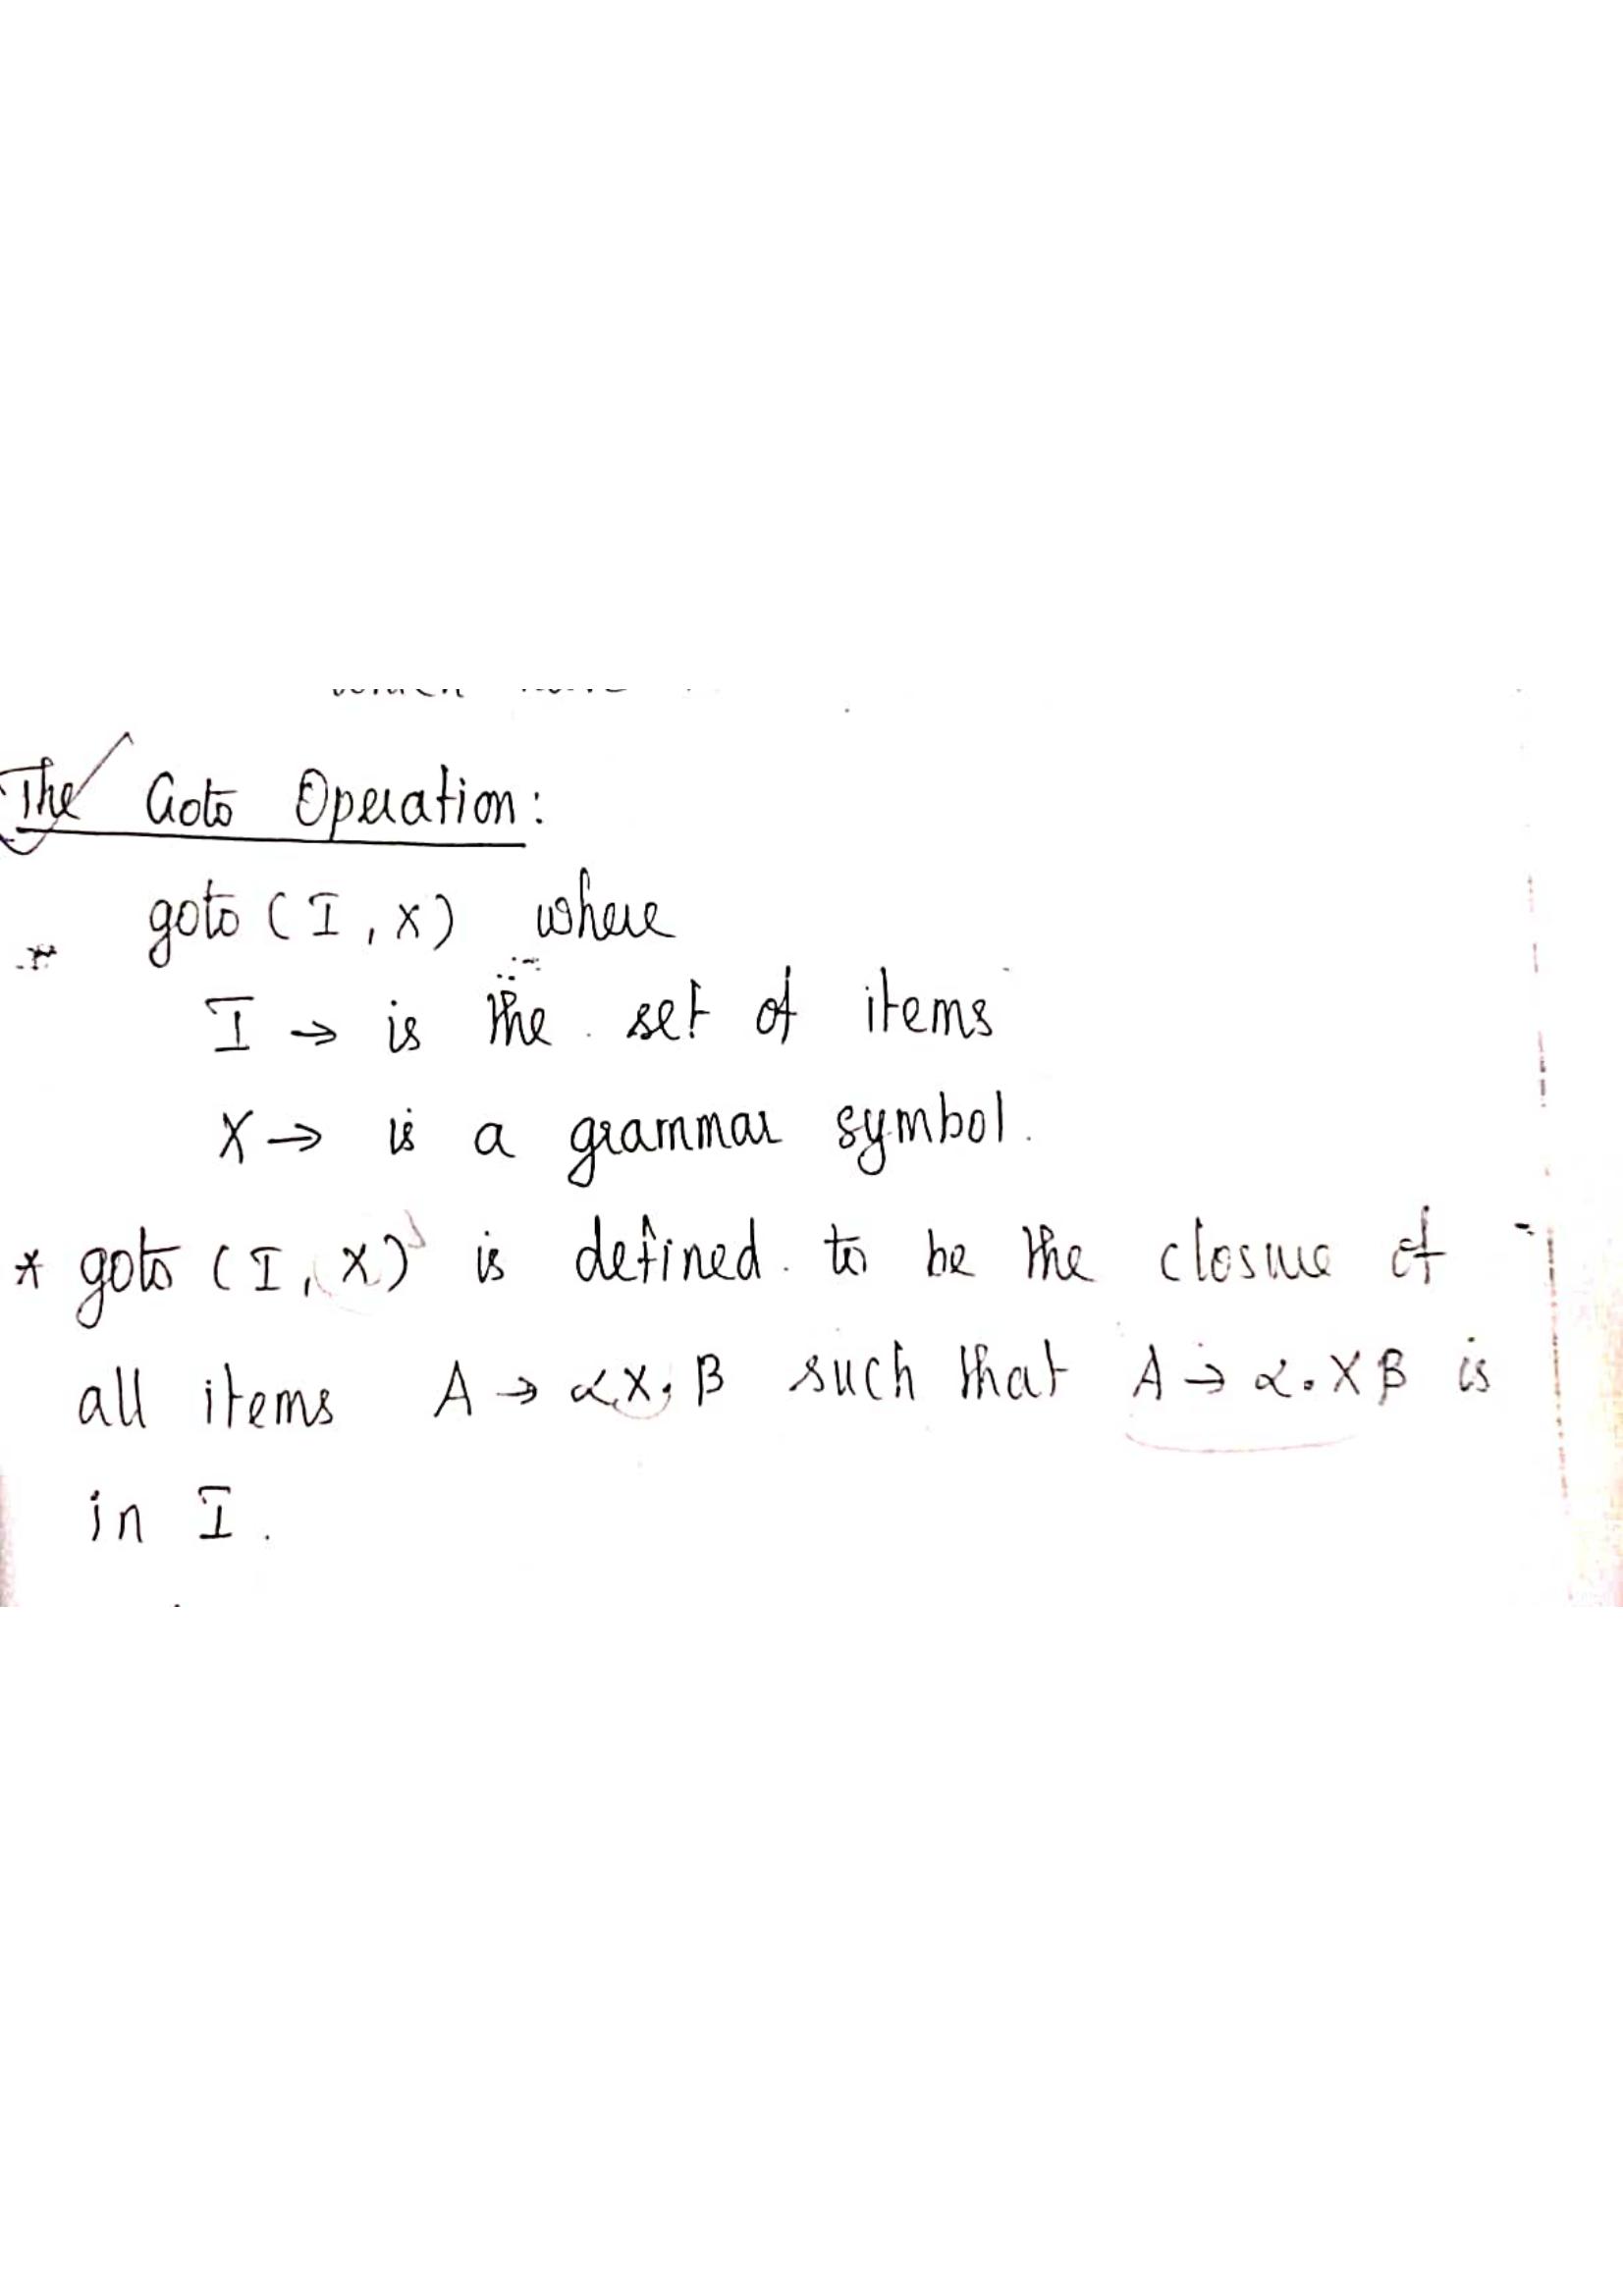 The Goto Operation:
goto (I, X) where
I → is the set of items
X → is a grammar symbol.
* goto (I, X) is defined to be the closure of
all items A → αX.β such that A → α.Xβ is
in I.